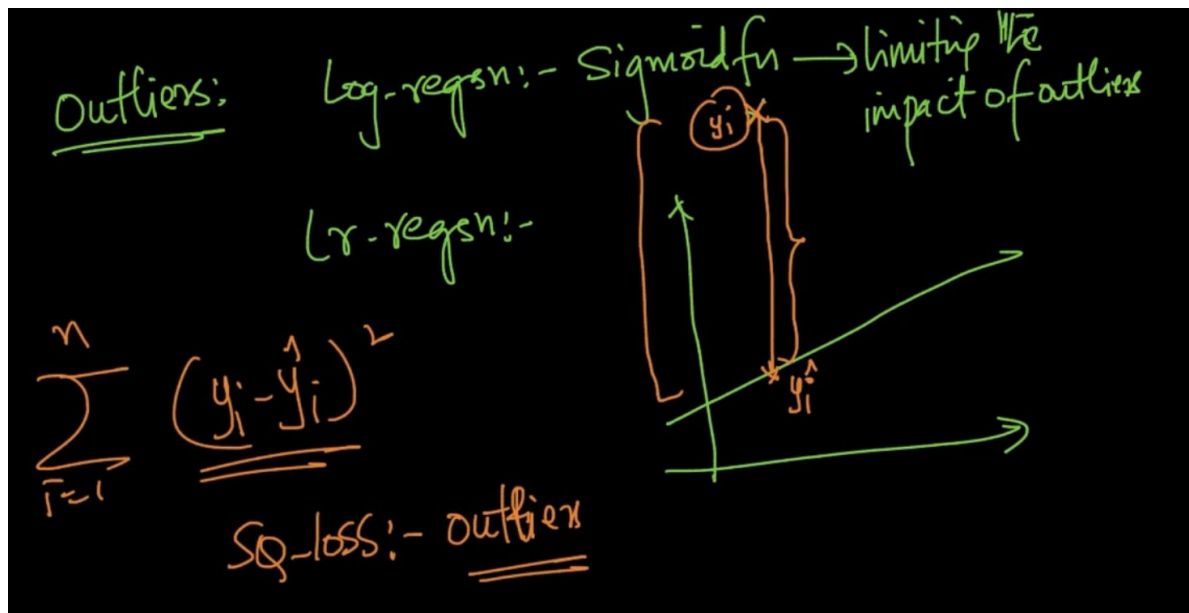 Outliers:
Log-regsn:- Sigmoid fn → limiting the
impact of outliers
yi
Lr-regsn:-
n
∑ (yi-ŷi)²
i=1
ŷi
SQ-loss:- outliers